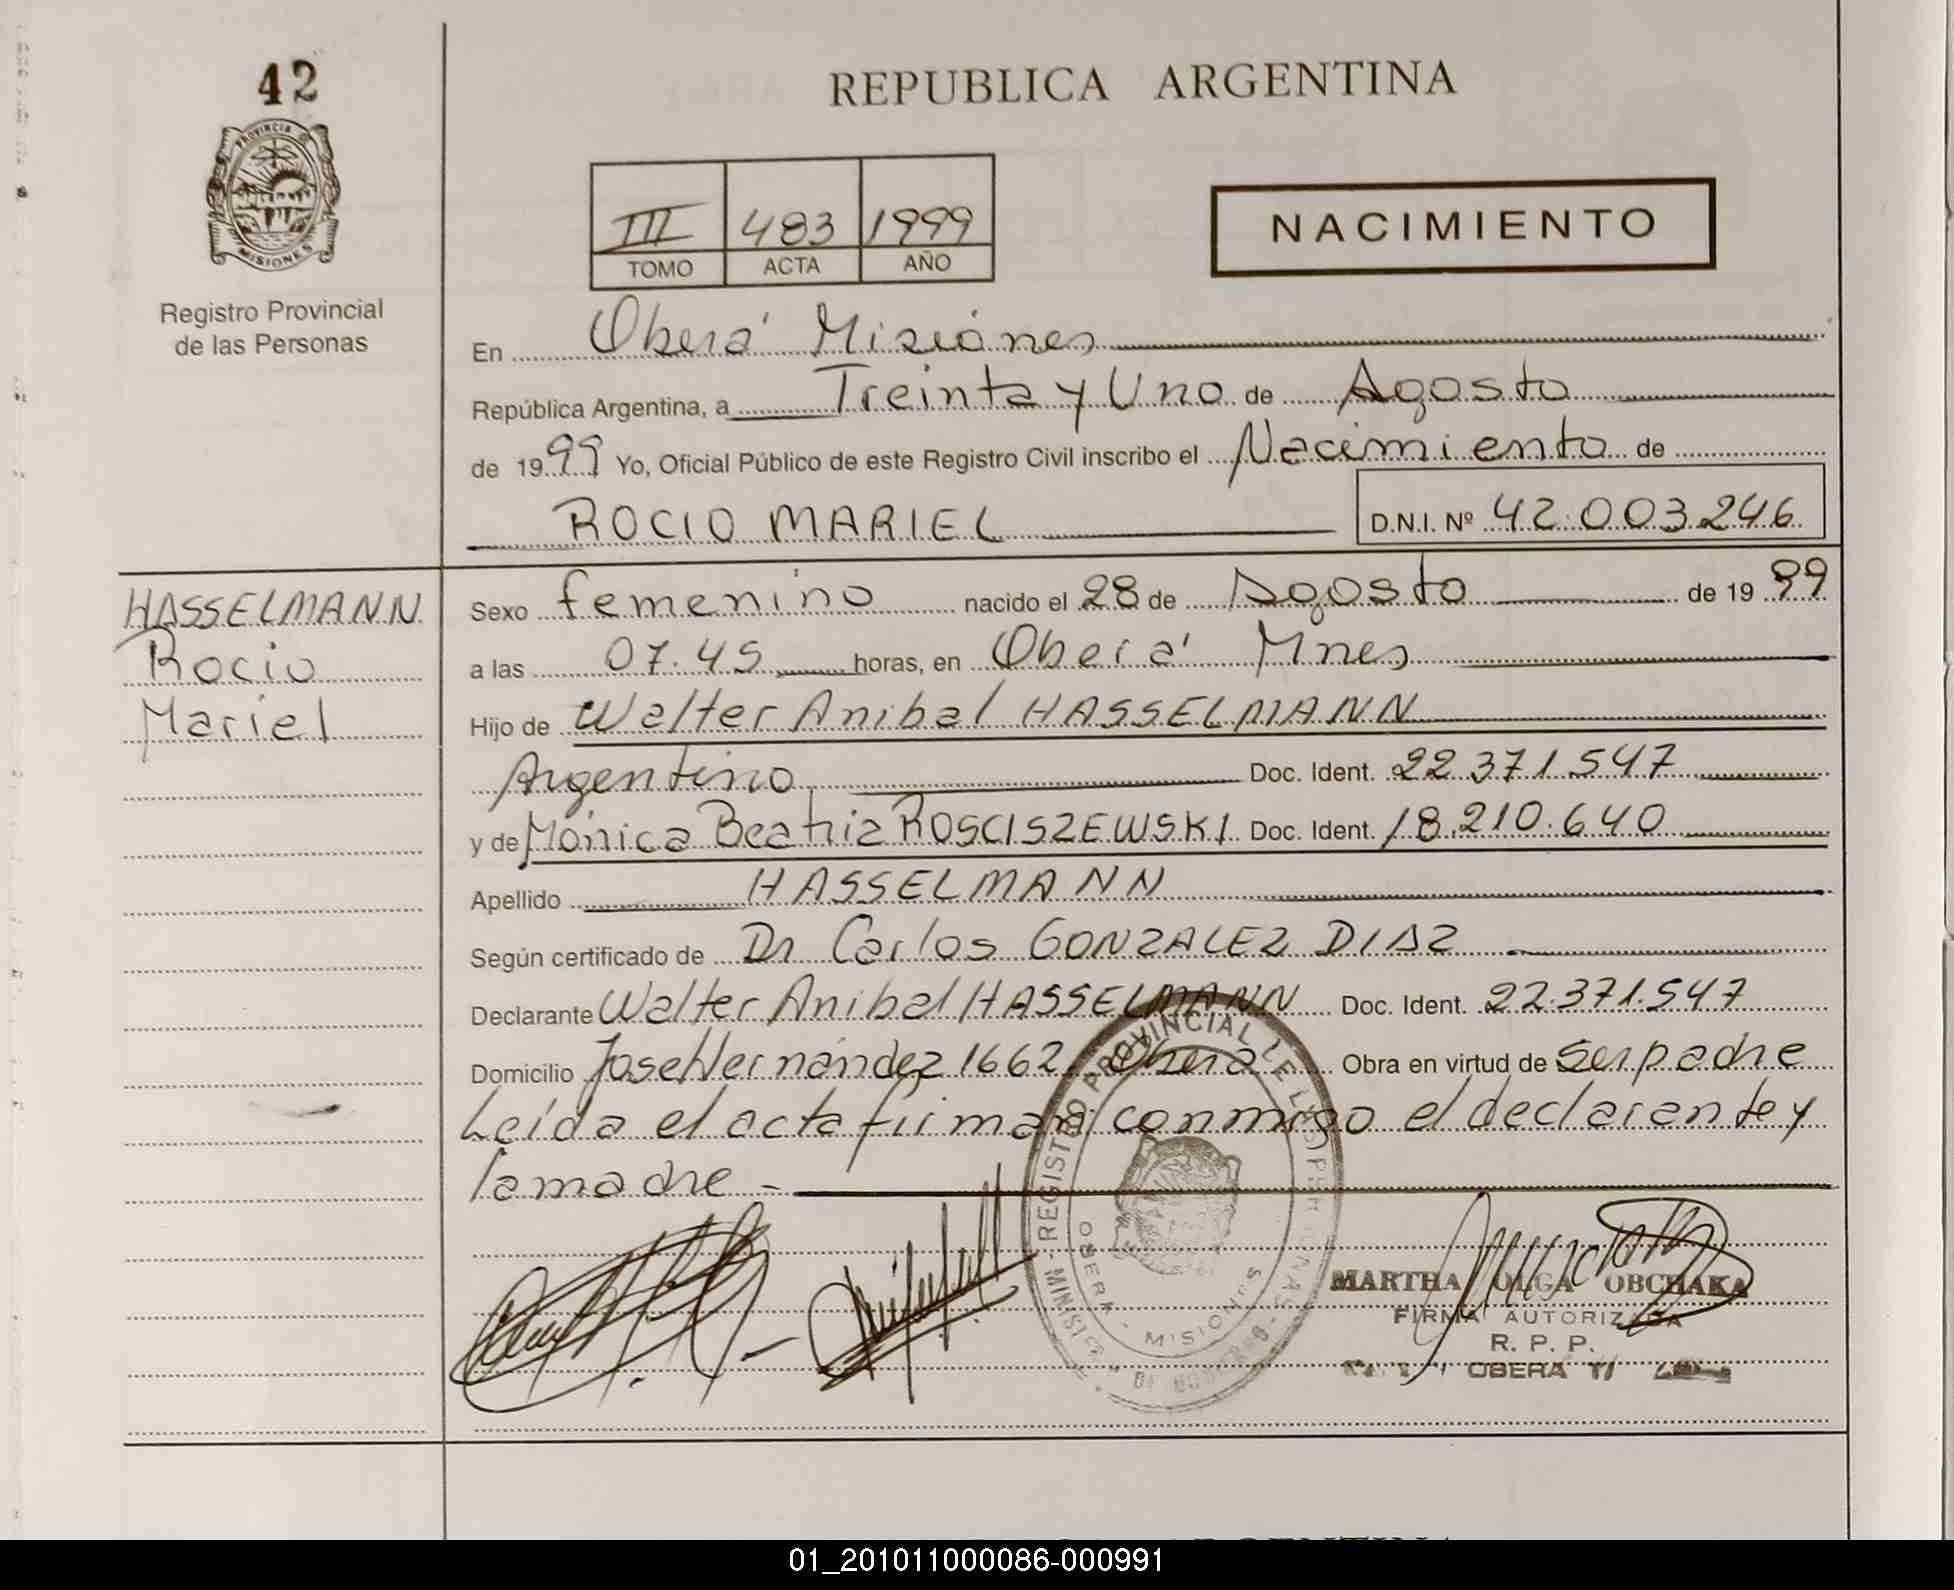 42
PROVINCIA DE
MISIONES
Registro Provincial
de las Personas
REPUBLICA ARGENTINA
III 483 1999
TOMO ACTA AÑO
NACIMIENTO
En Oberá Misiones
República Argentina, a Treinta y Uno de Agosto
de 1999 Yo, Oficial Público de este Registro Civil inscribo el Nacimiento de
ROCIO MARIEL D.N.I. Nº 42.003.246
HASSELMANN
Rocio
Mariel
Sexo femenino nacido el 28 de Agosto de 1999
a las 07.45 horas, en Oberá Mnes
Hijo de Walter Anibal HASSELMANN
Argentino Doc. Ident. 22.371.547
y de Mónica Beatriz ROSCISZEWSKI Doc. Ident. 18.210.640
Apellido HASSELMANN
Según certificado de Dr Carlos GONZALEZ DIAZ
Declarante Walter Anibal HASSELMANN Doc. Ident. 22.371.547
Domicilio Jose Hernández 1662 Oberá Obra en virtud de ser padre
Leída el acta firman conmigo el declarante y
la madre -
REGISTRO PROVINCIAL DE LAS PERSONAS
OBERA - MISIONES
MARTHA OLGA OBCHAKA
FIRMA AUTORIZADA
R. P. P.
OBERA
01_201011000086-000991